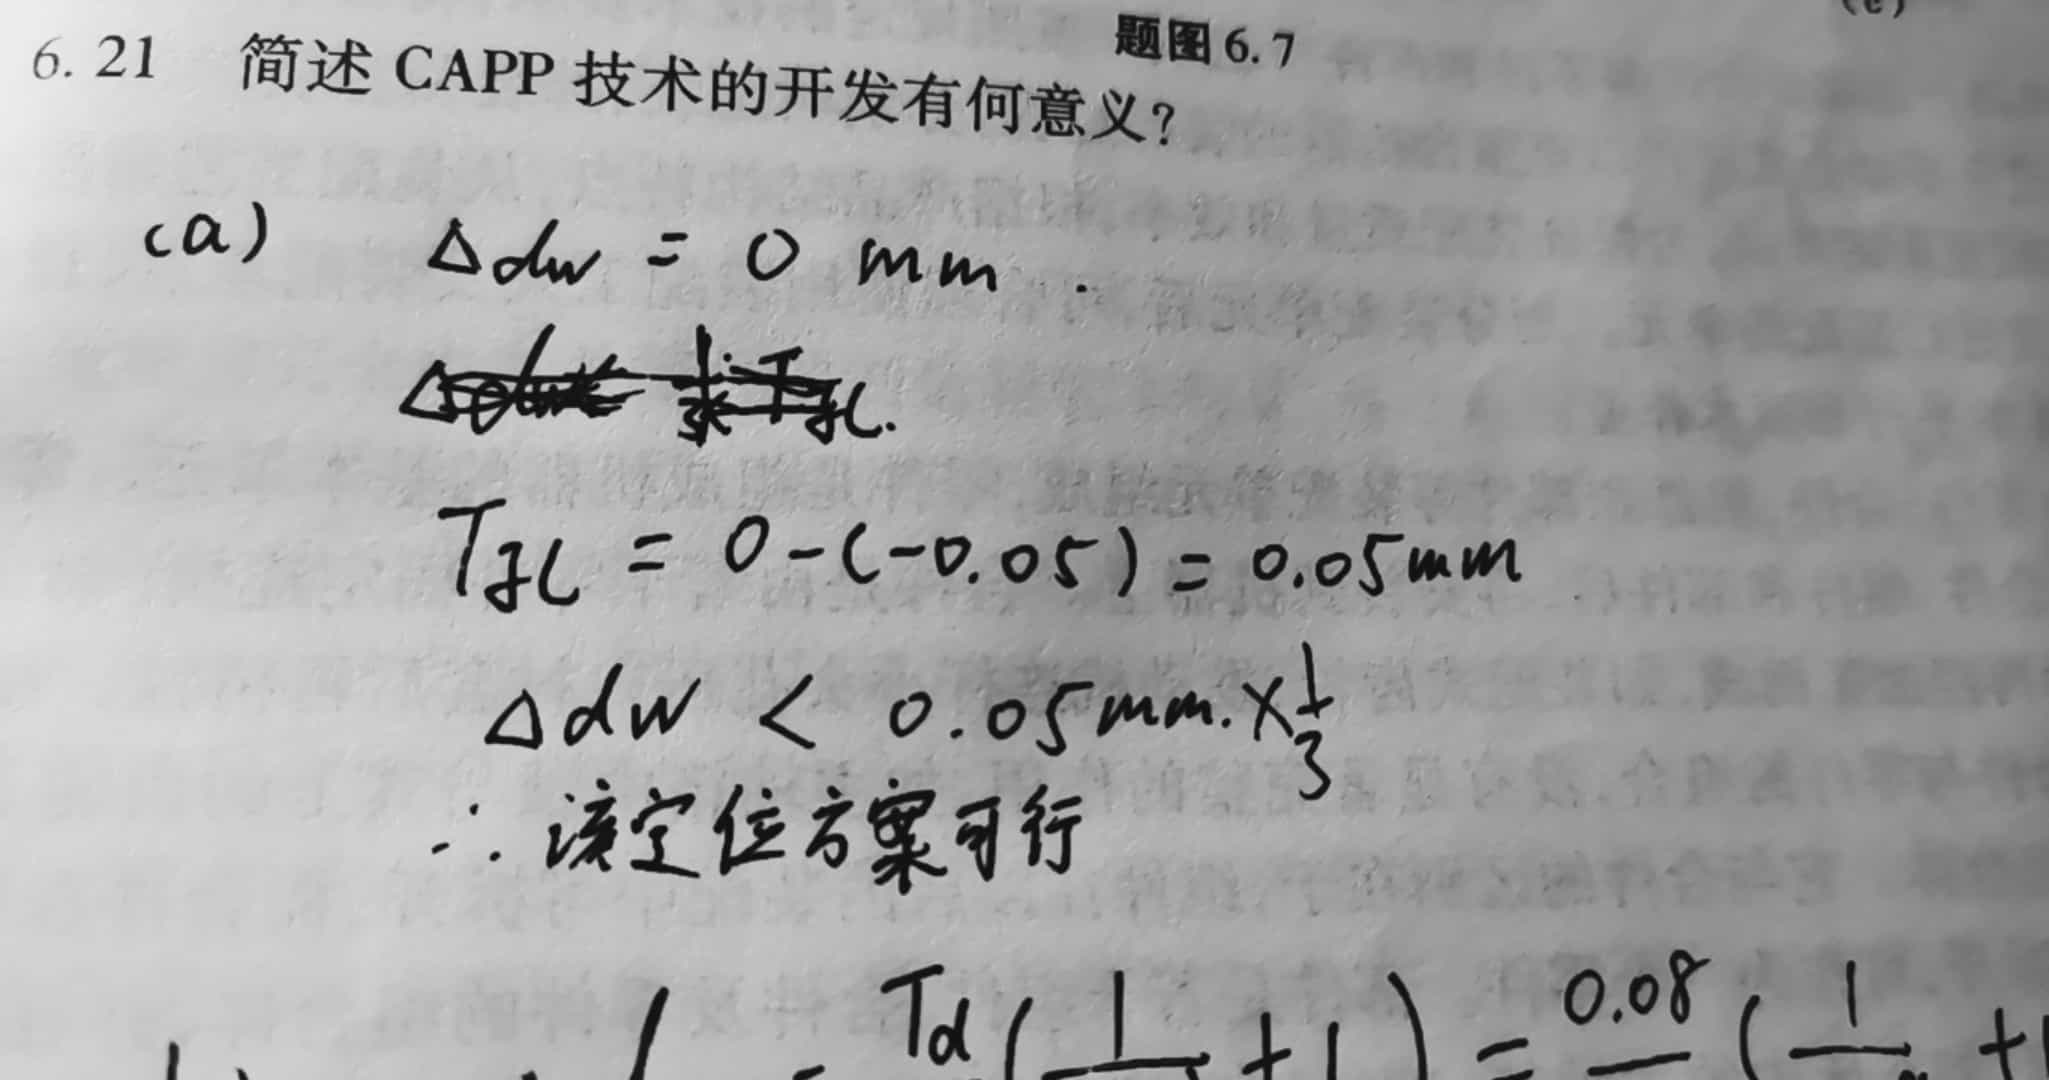 题图6.7
6.21 简述 CAPP 技术的开发有何意义?
(a) Δdw = 0 mm.
T孔 = 0-(-0.05) = 0.05mm
Δdw < 0.05mm. × 1/3
∴ 该定位方案可行
Td ( 1 + 1 ) = 0.08 ( 1 +